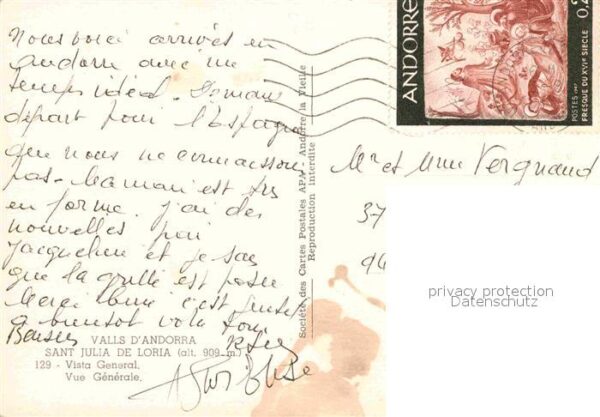 Nous voici arrivés en
Andorre avec un
temps idéal. Demain
départ pour l'Espagne
que nous ne connaissons
pas. Maman est très
en forme. J'ai des
nouvelles par
Jacqueline et je sais
que la est
Merci c'est
à bientôt à tous
Baisers
VALLS D'ANDORRA
SANT JULIA DE LORIA (alt. 909 m.)
129 - Vista General.
Vue Générale.
Société des Cartes Postales APA - Andorre la Vieille
Reproduction interdite
ANDORRE
0.2
POSTES 1967
FRESQUE DU XVIe SIÈCLE
Mr et Mme Vergnaud
37
94
privacy protection
Datenschutz